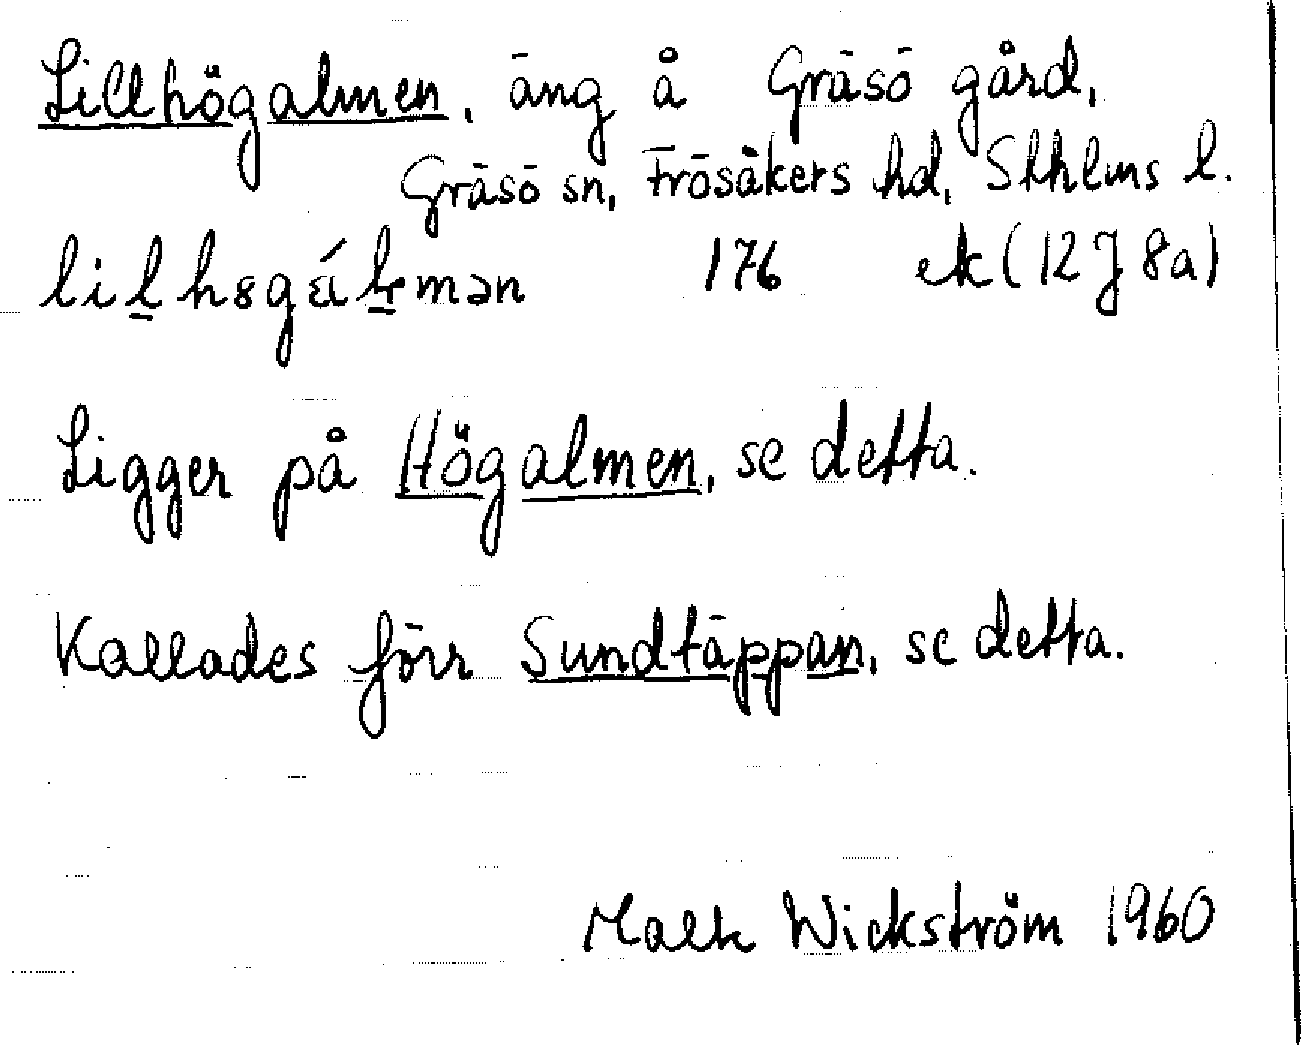 Lillhögalmen, äng å Gräsö gård,
Gräsö sn, Frösåkers hd, Sthlms l.
176 ek (12 J 8a)
Ligger på Högalmen, se detta.
Kallades förr Sundtäppan, se detta.
Wickström 1960